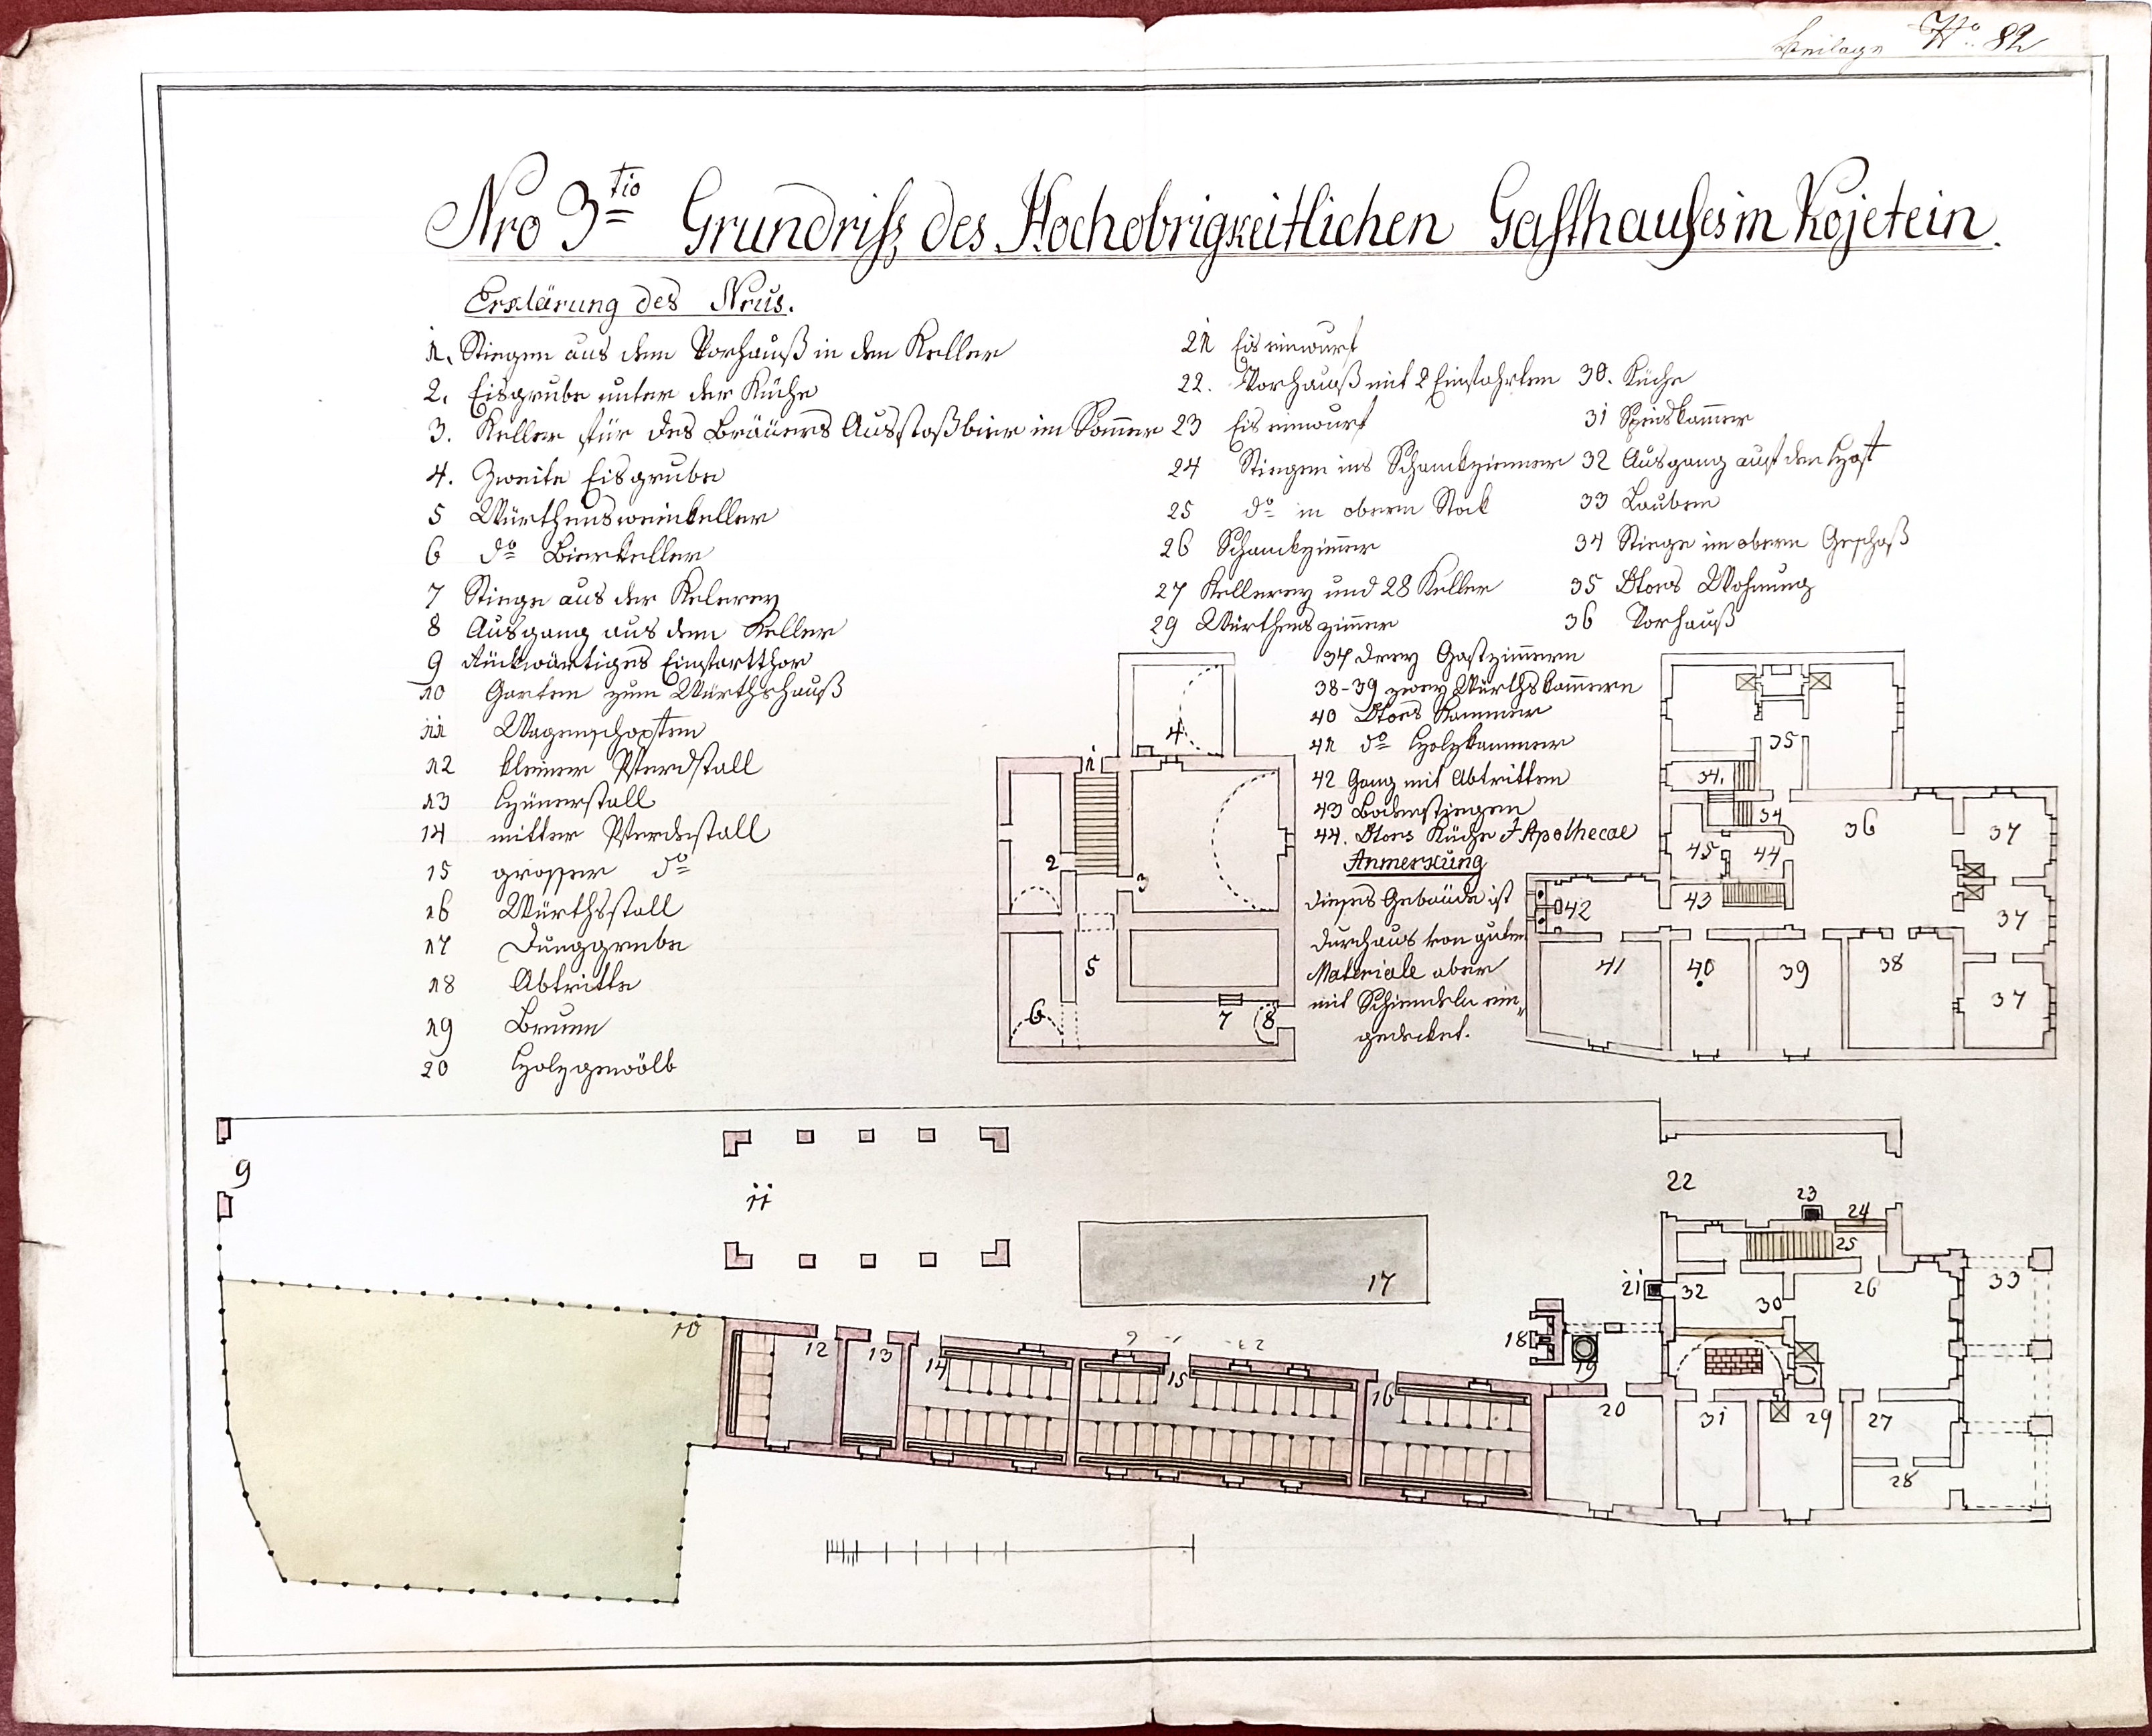 Beilage No. 82
Nro 3tio Grundriſs des Hochobrigkeitlichen Gaſthauſes in Kojetein.
Erklärung des Nrus.
1. Stiegen aus dem Vorhauß in den Keller
2. Eisgrube unter der Küche
3. Keller für des Bräuers Ausstoßbier im Som̄er
4. Zweite Eisgrube
5 Würthensweinkeller
6 do Bierkeller
7 Stiege aus der Kelerey
8 Ausgang aus dem Keller
9 Rückwärtiges Einfartthor
10 Garten zum Würthshauß
11 Wagenschopfen
12 kleiner Pferdstall
13 Hünerstall
14 mitter Pferdestall
15 grosser do
16 Würthsstall
17 Dunggrube
18 Abtritte
19 Brunn
20 Holzgewölb
21 Eiseinwurf
22. Vorhauß mit 2 Einfahrten
23 Eiseinwurf
24 Stiegen ins Schanckzimmer
25 do in obern Stock
26 Schanckzim̄er
27 Kellerey und 28 Keller
29 Würthenszim̄er
30. Küche
31 Speiskam̄er
32 Ausgang auf den Hof
33 Lauben
34 Stiege im obern Geschoß
35 Dtors Wohnung
36 Vorhauß
37 Drey Gastzim̄ern
38-39 zwey Würthskam̄ern
40 Dtors Kammer
41 do Holzkammer
42 Gang mit Abtritten
43 Bodenstiegen
44. Dtors Küche Apothecae
Anmerkung
Dieses Gebäude ist
durchaus von guten
Materiale aber
mit Schiendeln ein„
gedecket.
4
1
2
3
5
6
7
8
35
34.
34
36
37
45
44
43
42
37
41
40
39
38
37
9
11
22
23
24
25
17
21
32
30
26
33
10
12
13
14
15
16
18
19
20
31
29
27
28